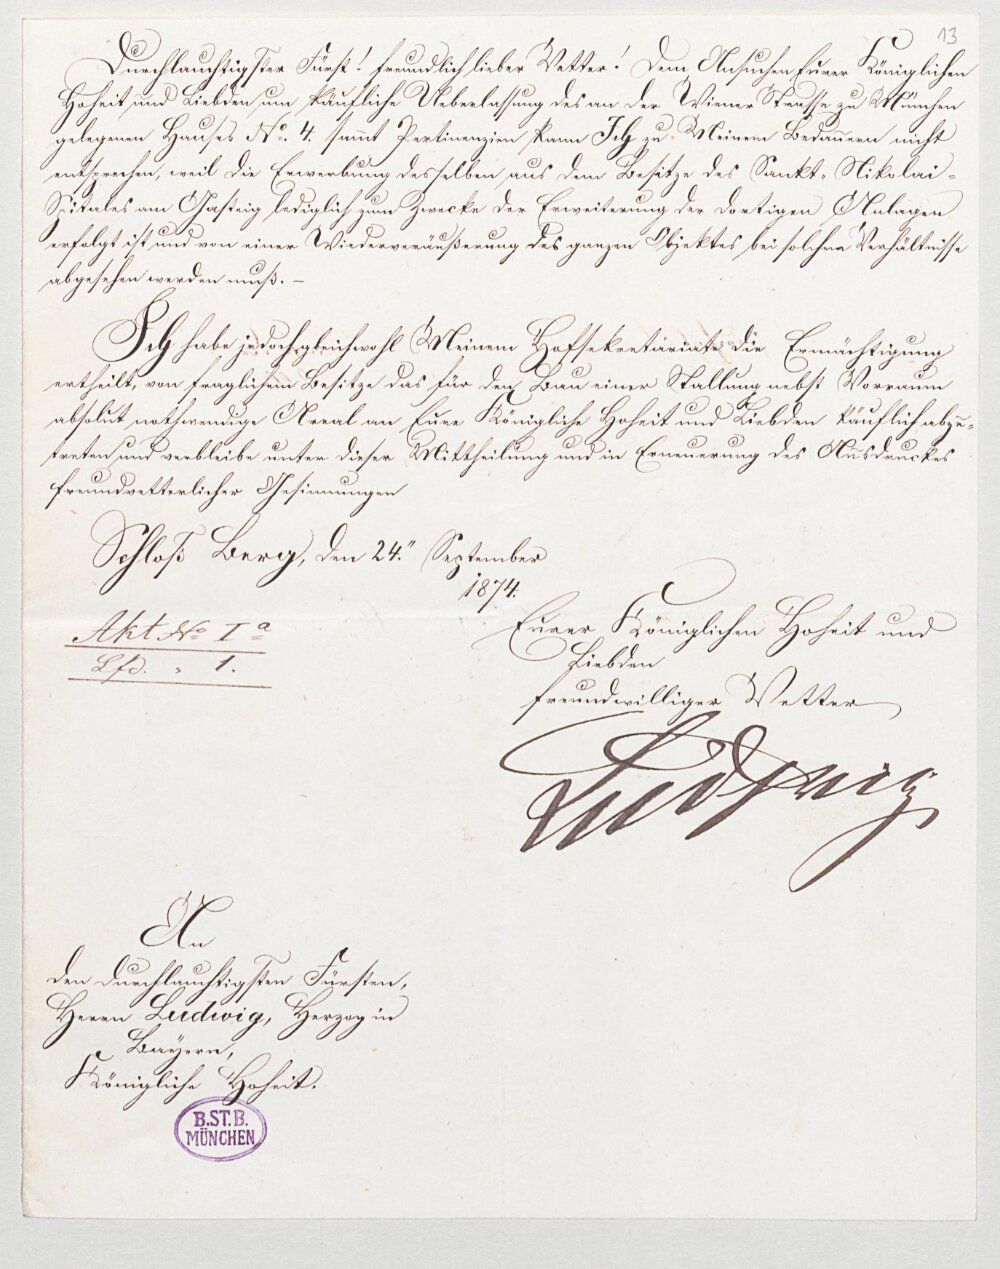 13
Durchlauchtigster Fürst! freundlich lieber Vetter! Dem Ansuchen Eurer Königlichen
Hoheit und Liebden um käufliche Ueberlassung des an der Wiener Strasse zu München
gelegenen Hauses No. 4. sammt Pertinenzien kann Ich zu Meinem Bedauern nicht
entsprechen, weil die Erwerbung desselben aus dem Besitze des Sankt-Nikolai-
Spitales am Gasteig lediglich zum Zwecke der Erweiterung der dortigen Anlagen
erfolgt ist und von einer Wiederveräußerung des ganzen Objektes bei solchem Verhältnisse
abgesehen werden muß. –
Ich habe jedoch gleichwohl Meinem Hofsekretariate die Ermächtigung
ertheilt, von fraglichem Besitze das für den Bau einer Stallung nebst Vorraum
absolut nothwendige Areal an Eure Königliche Hoheit und Liebden käuflich abzu-
treten und verbleibe unter dieser Mittheilung und in Erneuerung des Ausdruckes
freundvetterlicher Gesinnungen
Schloß Berg, den 24. September
1874.
Akt No I a
Lfd. " 1.
Eurer Königlichen Hoheit und
Liebden
freundwilliger Vetter
Ludwig
An
den durchlauchtigsten Fürsten,
Herrn Ludwig, Herzog in
Bayern,
Königliche Hoheit.
B.ST.B.
MÜNCHEN